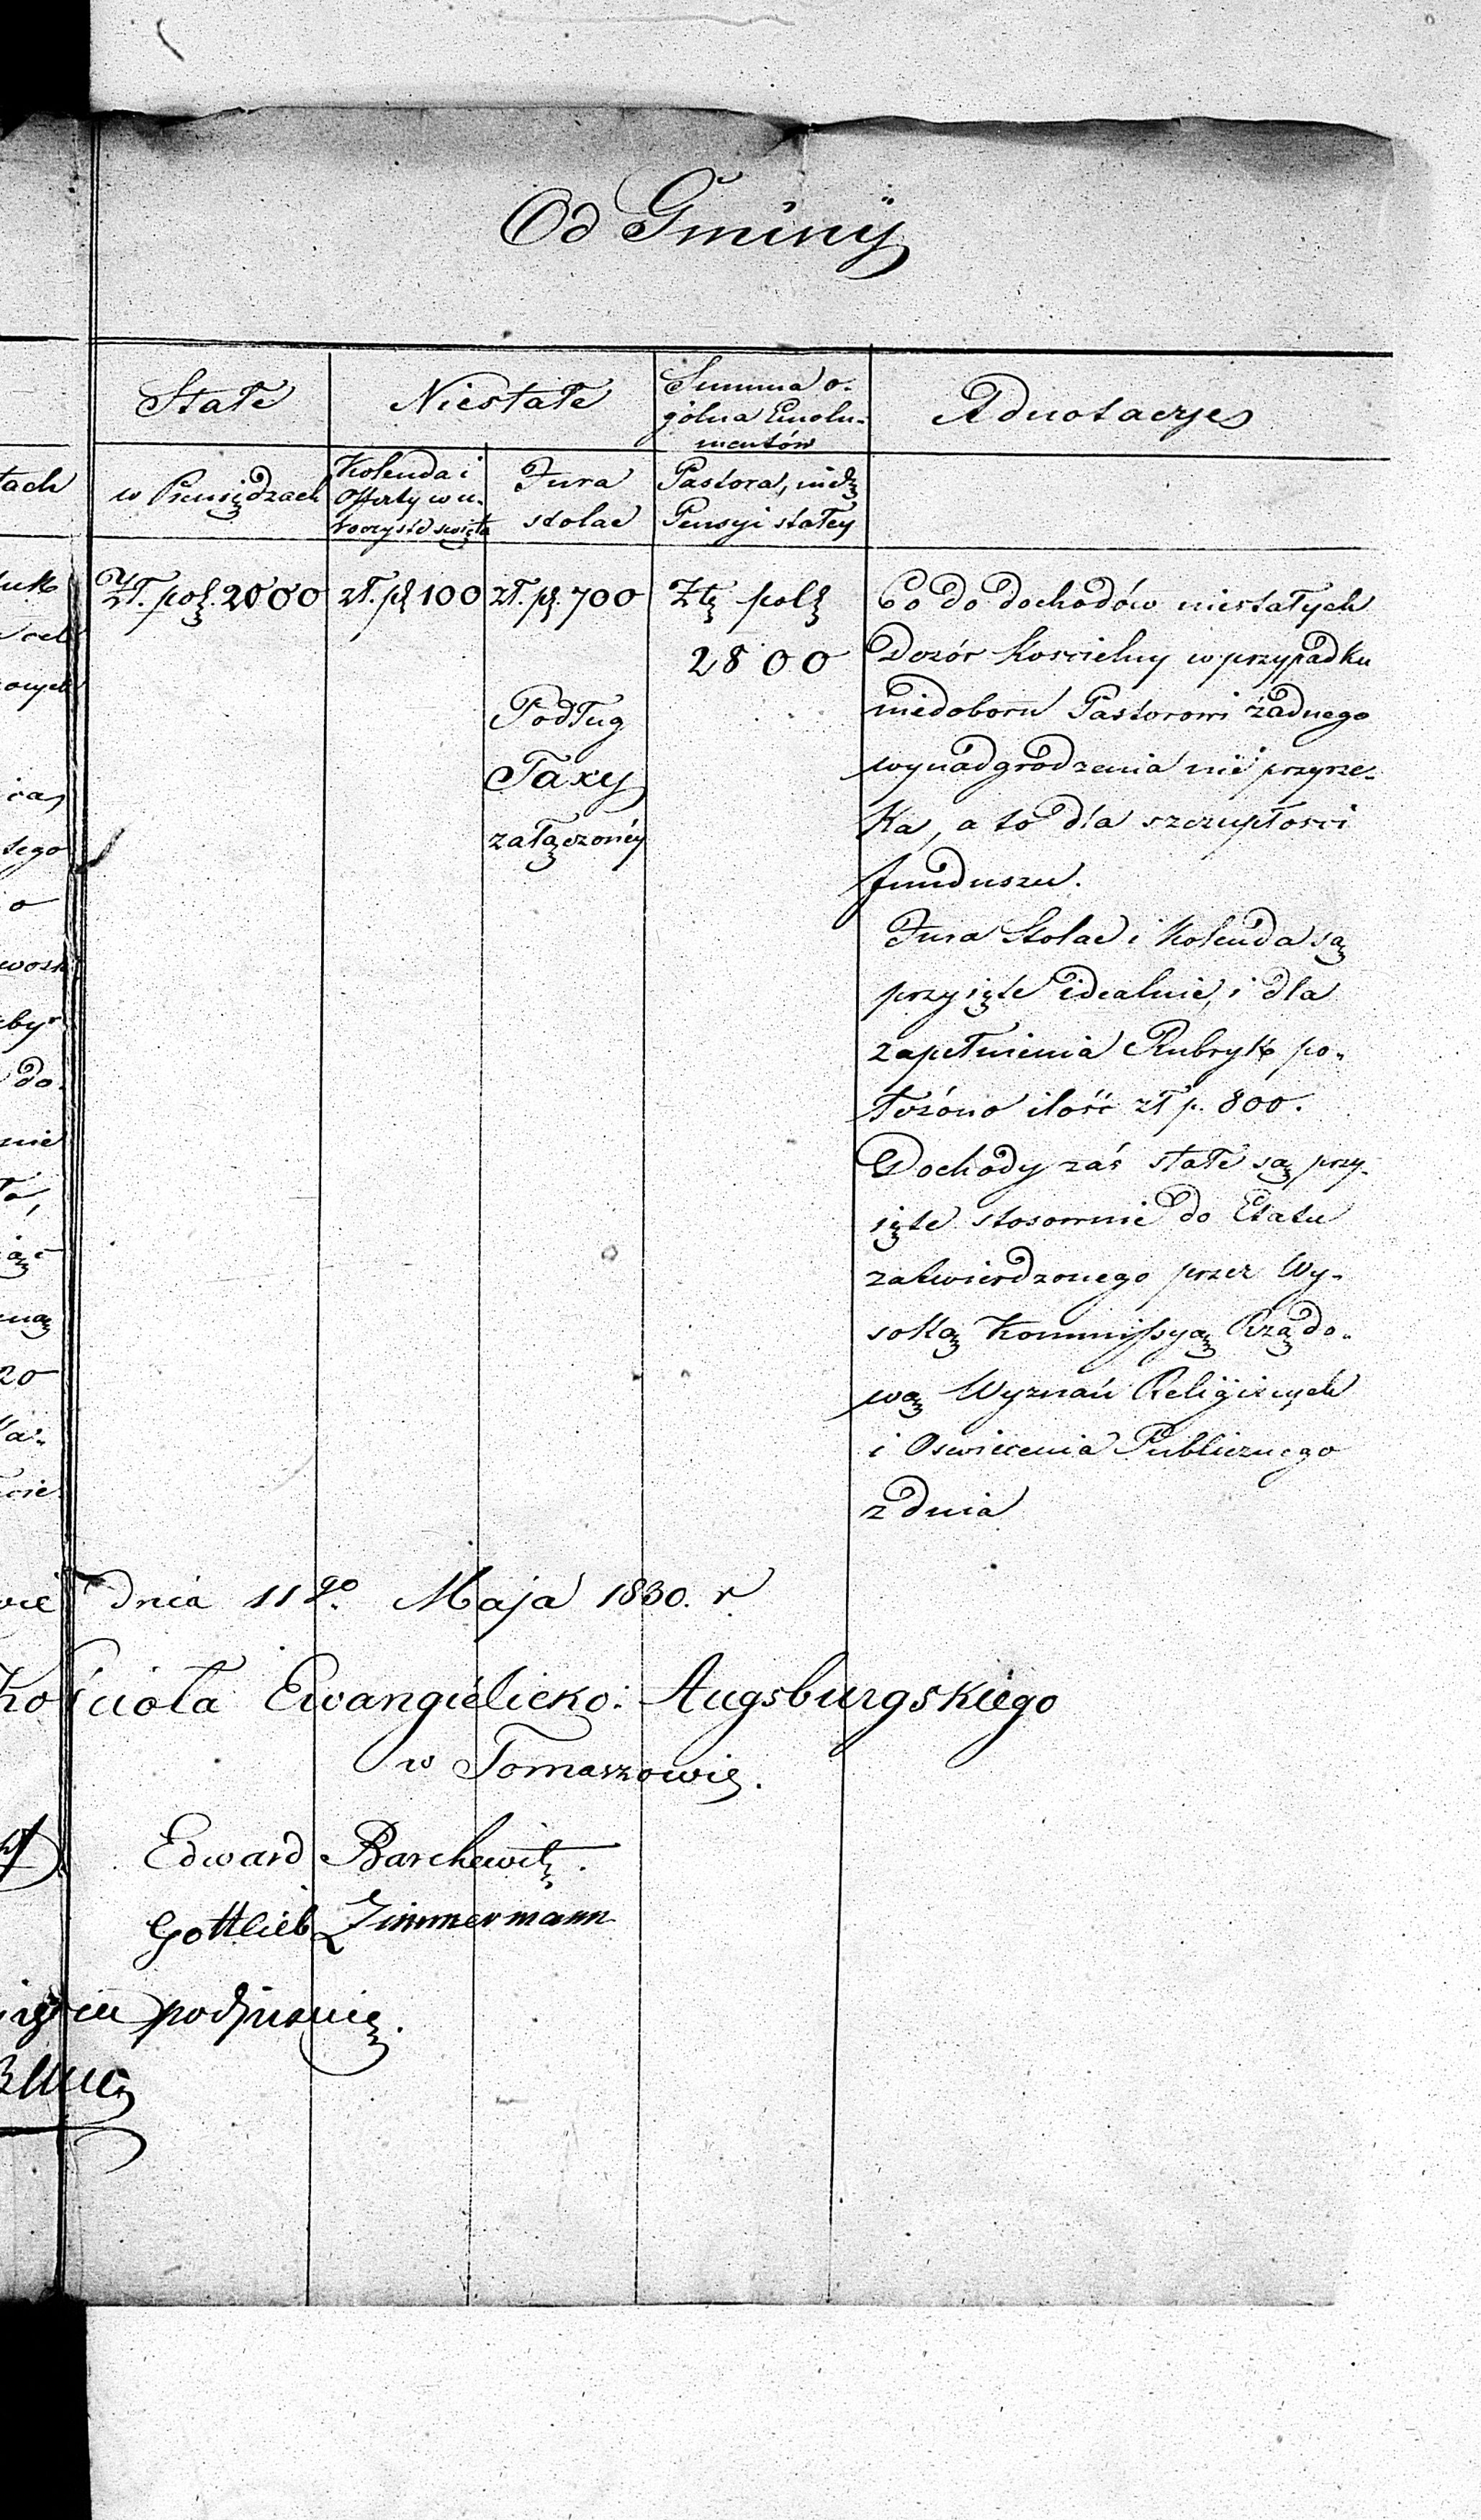 Od Gminÿ
Stałe
Niestałe
Summa o-
gólna Emolu-
mentów
Adnotacye
w Pieniędzach
Kolenda i
Offerty w u-
roczyste święta
Jura
stolae
Pastora,
Pensyi stałey
Zł. pol. 2000
zł. p. 100
zł. p. 700
Złt polt
2800
Podług
Taxy
załączonéy
Co do dochodów niestałych
Dozór Koscielny w przypadku
niedoboru Pastorowi żadnego
wynadgrodzenia nie przyrze-
ka, a to dla szczupłosci
funduszu.
Jura Stolae i Kolenda są
przyięte idealnie, i dla
zapełnienia Rubryk po-
łożóno ilość zł p. 800.
Dochody zaś stałe są przy-
ięte stosownie do Etatu
zatwierdzonego przez Wy-
soką Kommissyą Rządo-
wą Wyznań Religiinych
i Oswiecenia Publicznego
z dnia
dnia 11go Maja 1830. r
Kościoła Ewangielicko: Augsburgskiego
w Tomaszowie.
Edward Barchewitz.
Gottlieb Zimmermann
podpisanie.